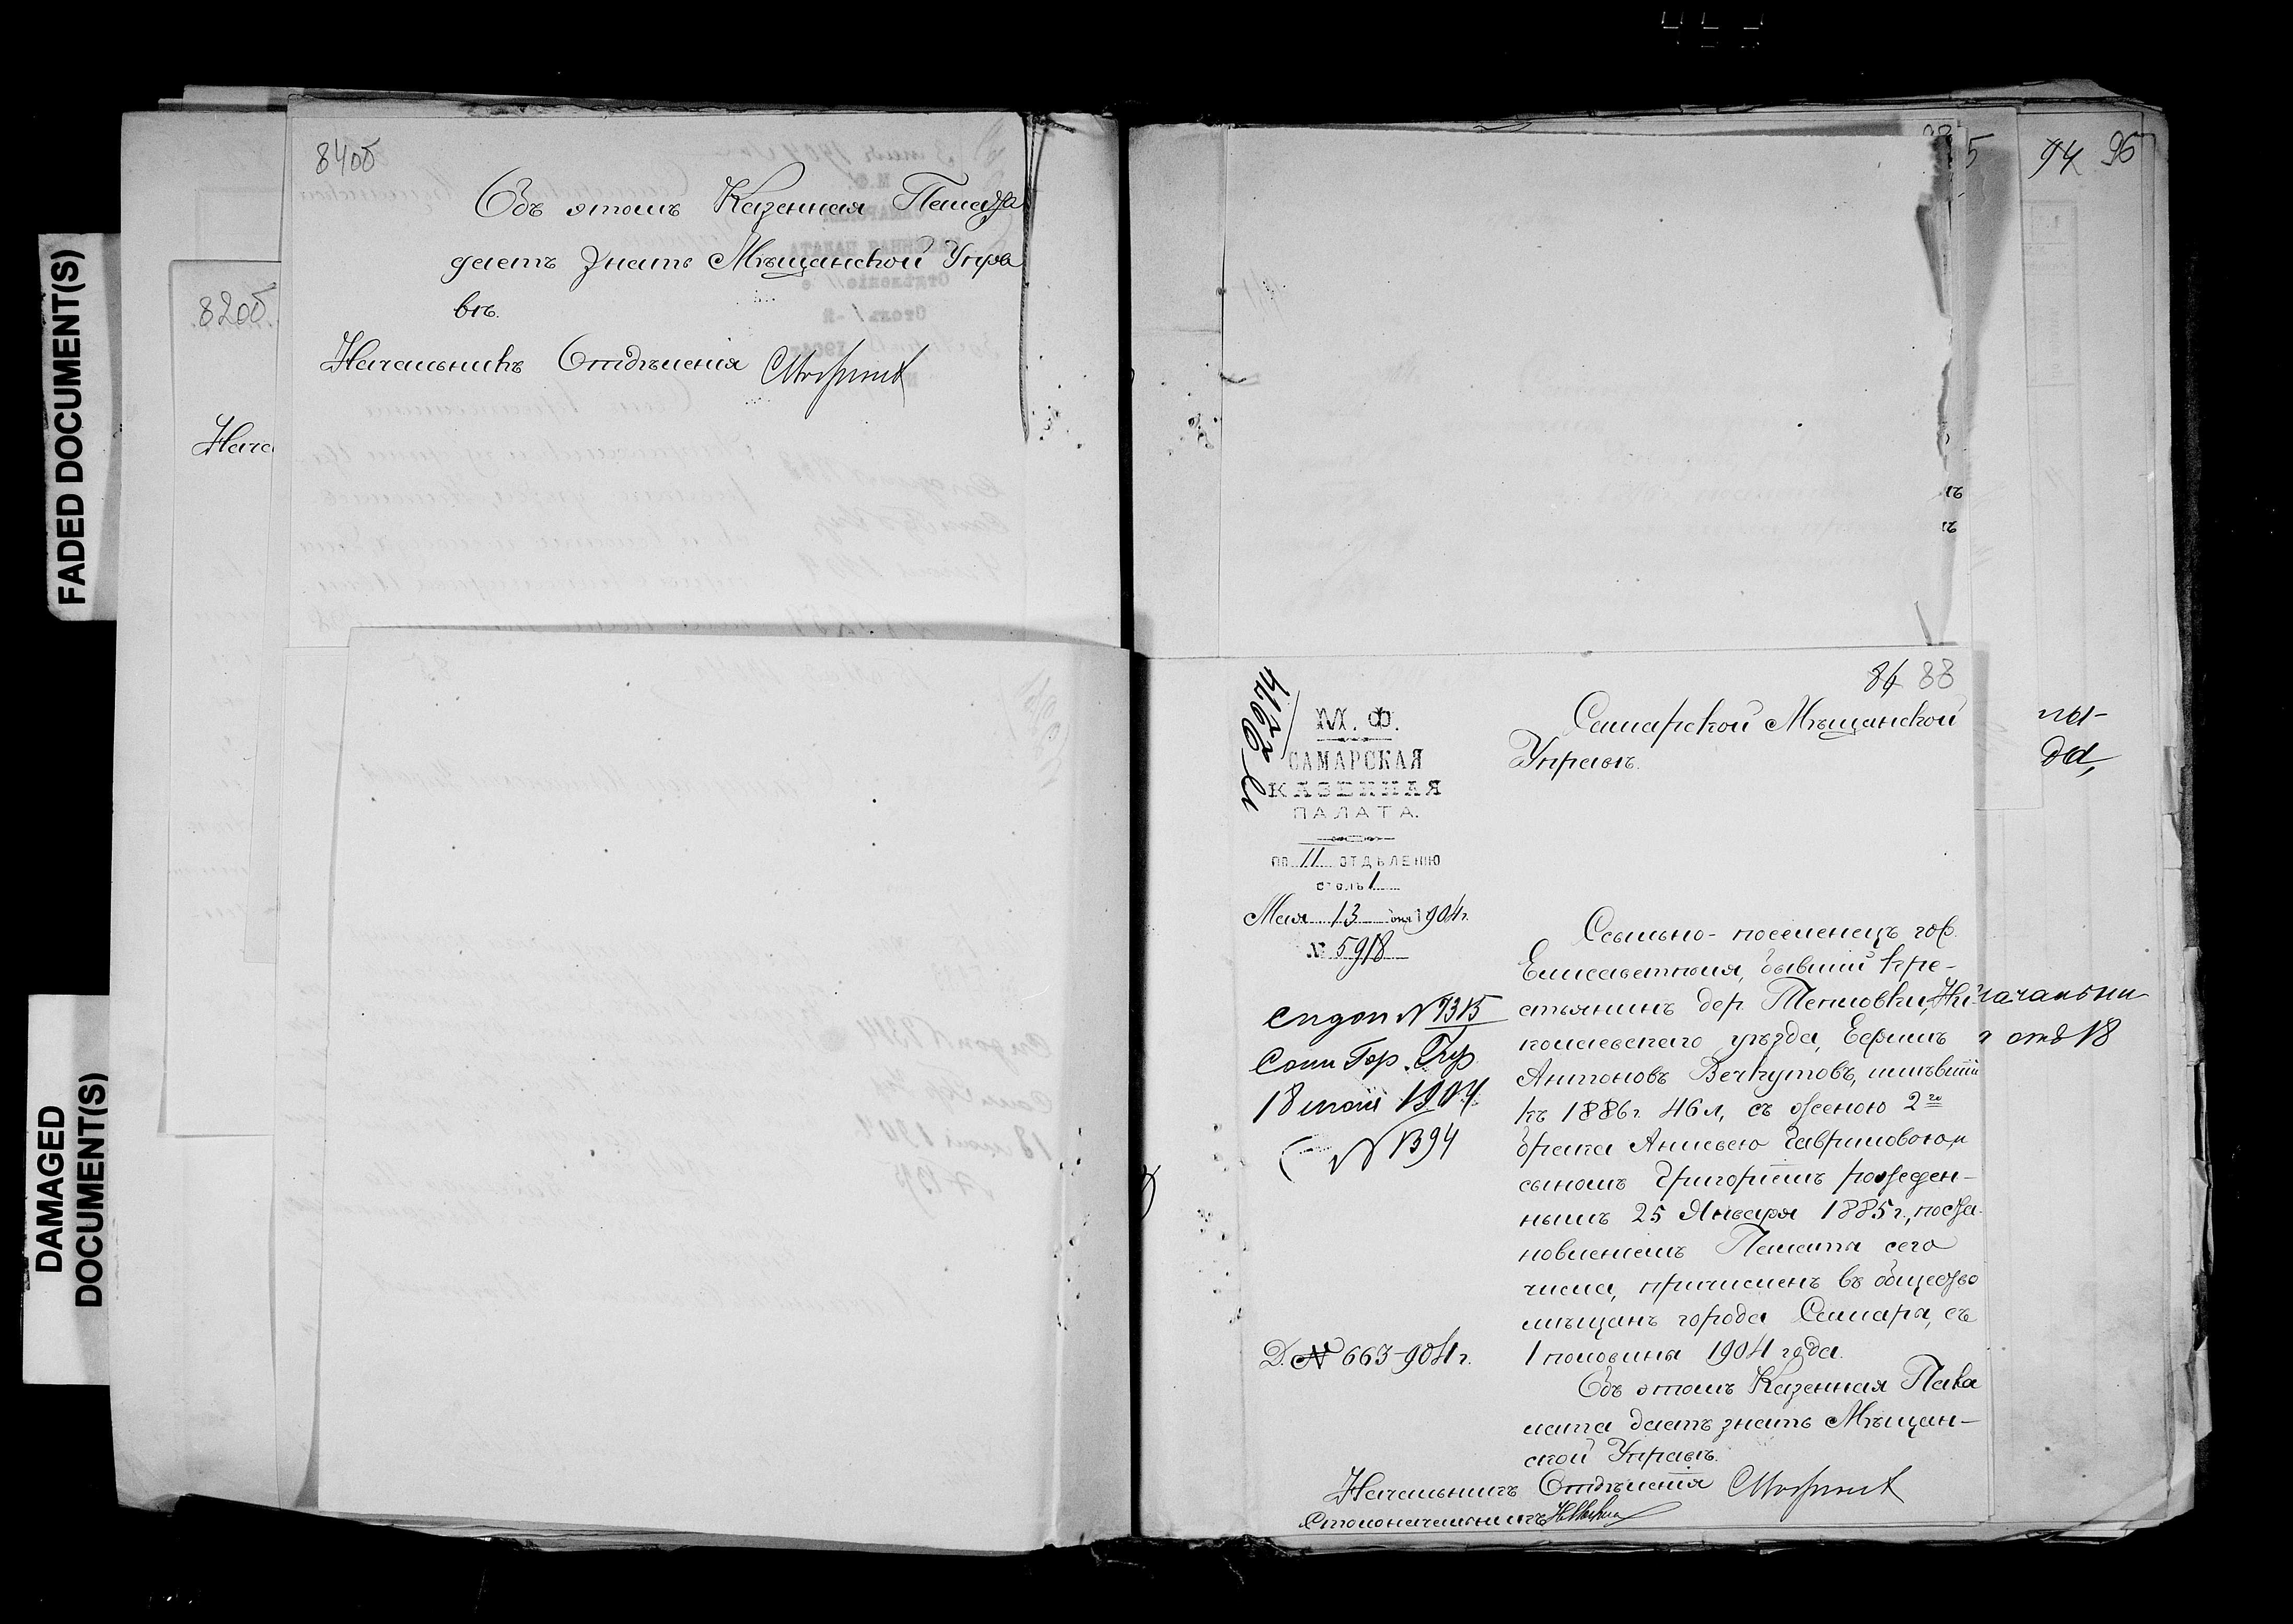 FADED DOCUMENT(S)
DAMAGED
DOCUMENT(S)
82об
Нача
84об
Объ этомъ Казенная Палата
даетъ знать Мѣщанской Упра
вѣ.
Начальникъ Отдѣленія
5
94 96
86 88
№ 2274
М. Ф.
САМАРСКАЯ
КАЗЕННАЯ
ПАЛАТА.
по II отдѣленію
столъ 1
Мая 13 дня 1904 г.
№ 5918
Самарской Мѣщанской
Управѣ.
Ссыльно-поселенецъ гор.
Елисаветполя, бывшій кре-
стьянинъ дер. Тепловки, Ни-
колаевскаго уѣзда, Ефимъ
Антоновъ Веркутовъ, имѣвшій
къ 1886 г. 46 л, съ женою 2го
брака Анисьею Гавриловою, и
сыномъ Григоріемъ рожден-
нымъ 25 Января 1885 г., поста-
новленіемъ Палаты сего
числа, причисленъ въ общество
мѣщанъ города Самары, съ
1 половины 1904 года.
Объ этомъ Казенная Пала
лата даетъ знать Мѣщан-
ской Управѣ.
Начальникъ Отдѣленія
Столоначальникъ
1904
№ 1394
Д. № 663-904 г.
да,